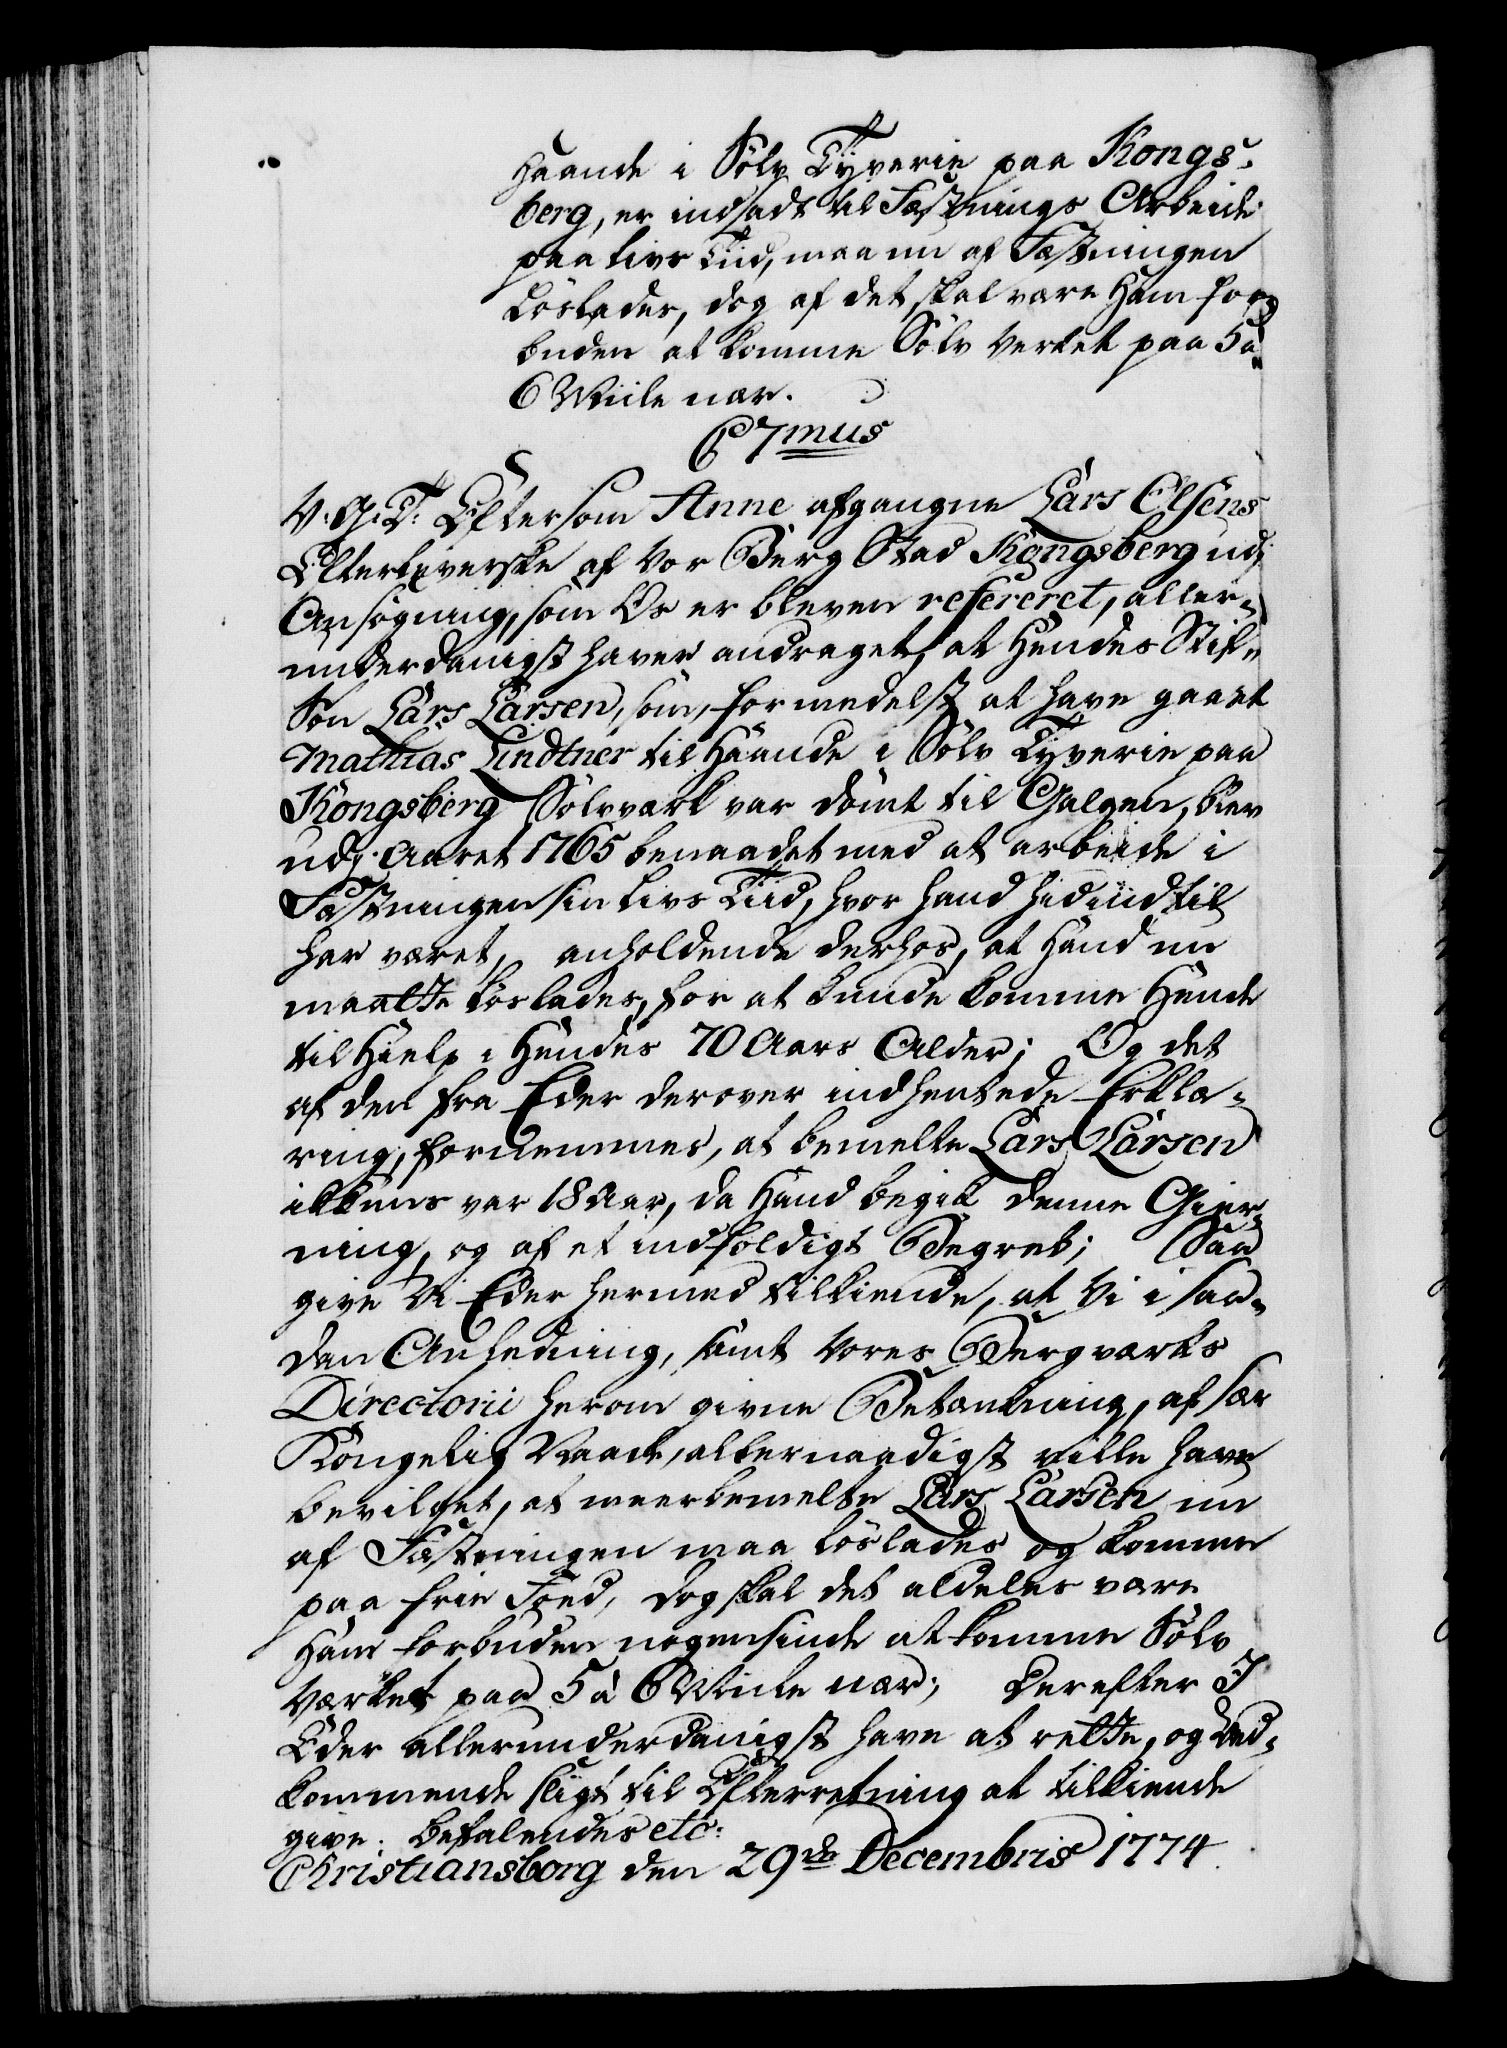 Haande i Sölv Tyverie paa Kongs-
berg, er indsadt til Fæstnings Arbeide
paa Livs Tiid, maa nu af Fæstningen
löslades, dog af det skal være Ham for-
buden at komme Sölv Verket paa 5 à
6 Miile nær.
C 7mus
V. G. T. Eftersom Anne afgangne Lars Olsens
Efterleverske af Vor Berg Stad Kongsberg udj
Ansögning, som Os er bleven refereret, aller-
underdanigst haver andraget, at Hendes Stif-
Sön Lars Larsen, som, formedelst at have gaaet
Mathias Lindtner til Haande i Sölv Tyverie paa
Kongsberg Sölvværk var dömt til Galgen, blev
udj Aaret 1765 benaadet med at arbeide i
Fæstningen sin Livs Tiid, hvor Hand hidindtil
har været, anholdende derhos, at Hand nu
maatte löslades, for at kunde komme Hende
til Hielp i Hendes 70 Aars Alder; Og det
af den fra Eder derover indhentede Erklæ-
ring, fornemmes, at bemelte Lars Larsen
ikkuns var 18 Aar, da Hand begik denne Gier-
ning, og af et indfoldigt Begreb; Saa
give Vi Eder hermed tilkiende, at Vi i saa-
dan Anledning, samt Vores Bergværks
Directorii herom givne Betænkning, af sær
Kongelig Naade, allernaadigst ville have
bevilget, at meerbemelte Lars Larsen nu
af Fæstningen maa löslades og komme
paa frie Foed, dog skal det aldeles være
Ham forbuden nogensinde at komme Sölv
Værket paa 5 à 6 Miile nær; Derefter I
Eder allerunderdanigst have at rette, og Ved-
kommende sligt til Efterretning at tilkiende
give. Befalendes etc:
Christiansborg den 29de Decembris 1774.